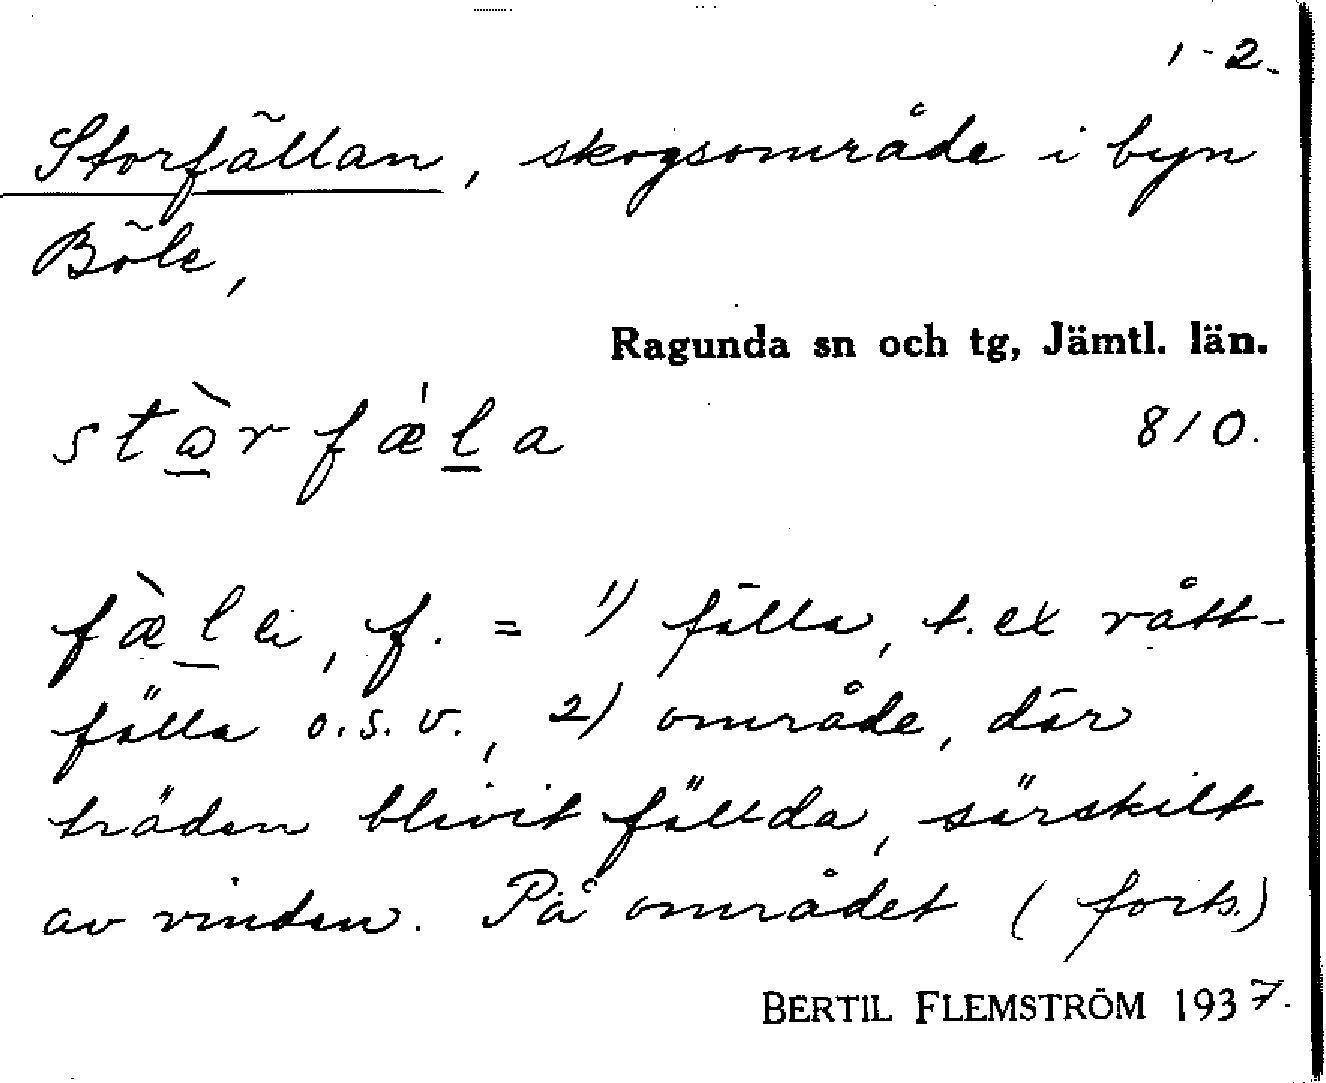 1-2.
Storfällan, skogsområde i byn
Böle,
Ragunda sn och tg, Jämtl. län.
stɷ̀rfæ̍la 810.
fæ̀la, f. = 1) fälla, t.ex rått-
fälla o.s.v., 2) område, där
träden blivit fällda, särskilt
av vinden. På området (forts.)
BERTIL FLEMSTRÖM 1937.